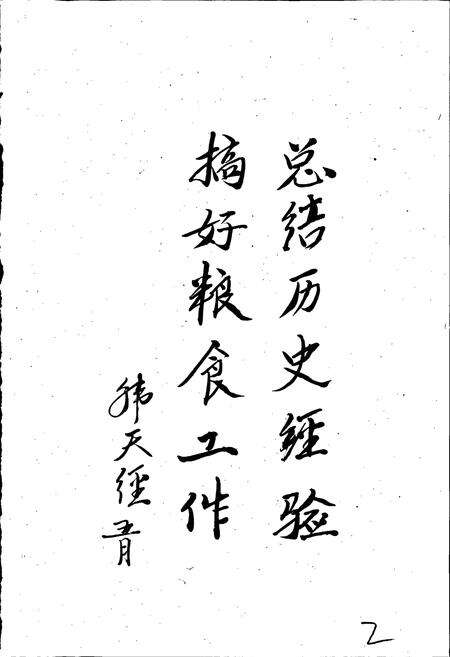 总结历史经验
搞好粮食工作
韩天经 五月
2